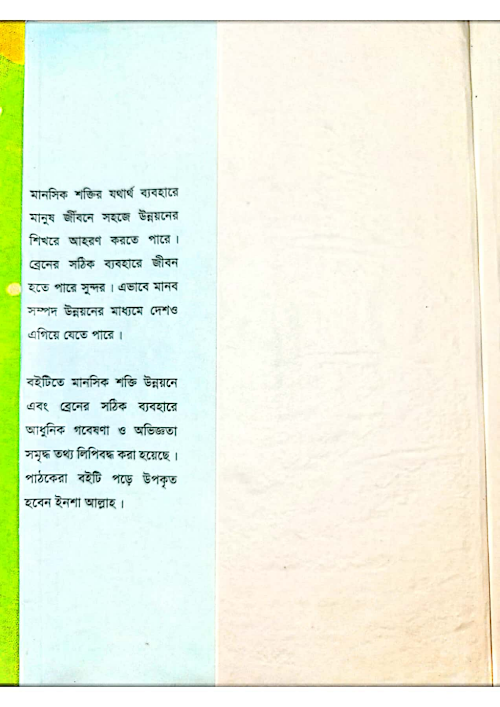 মানসিক শক্তির যথার্থ ব্যবহারে
মানুষ জীবনে সহজে উন্নয়নের
শিখরে আহরণ করতে পারে।
ব্রেনের সঠিক ব্যবহারে জীবন
হতে পারে সুন্দর। এভাবে মানব
সম্পদ উন্নয়নের মাধ্যমে দেশও
এগিয়ে যেতে পারে।
বইটিতে মানসিক শক্তি উন্নয়নে
এবং ব্রেনের সঠিক ব্যবহারে
আধুনিক গবেষণা ও অভিজ্ঞতা
সমৃদ্ধ তথ্য লিপিবদ্ধ করা হয়েছে।
পাঠকেরা বইটি পড়ে উপকৃত
হবেন ইনশা আল্লাহ।